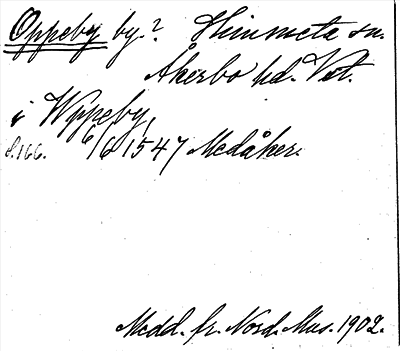 Oppeby by.? Himmeta sn.
Åkerbo hd. Vstl.
i Wppeby,
s.166. 6/6 1547 Medåker.
Medd. fr. Nord. Mus. 1902.